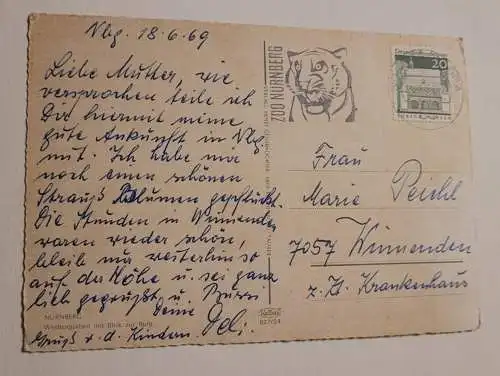 Nbg. 18.6.69
Liebe Mutter, wie
versprochen teile ich
Dir hiermit meine
gute Ankunft in Nbg.
mit. Ich habe mir
noch einen schönen
Strauß Blumen gepflückt.
Die Stunden in Winnenden
waren wieder schön,
bleib mir weiterhin so
auf der Höhe u. sei ganz
lich gegrüßt u. Bussi
Deine
Gruß v. d. Kindern
ZOO NÜRNBERG
20
Frau
Marie Peichl
7057 Winnenden
z. Zt. Krankenhaus
NÜRNBERG
mit Blick zur Burg